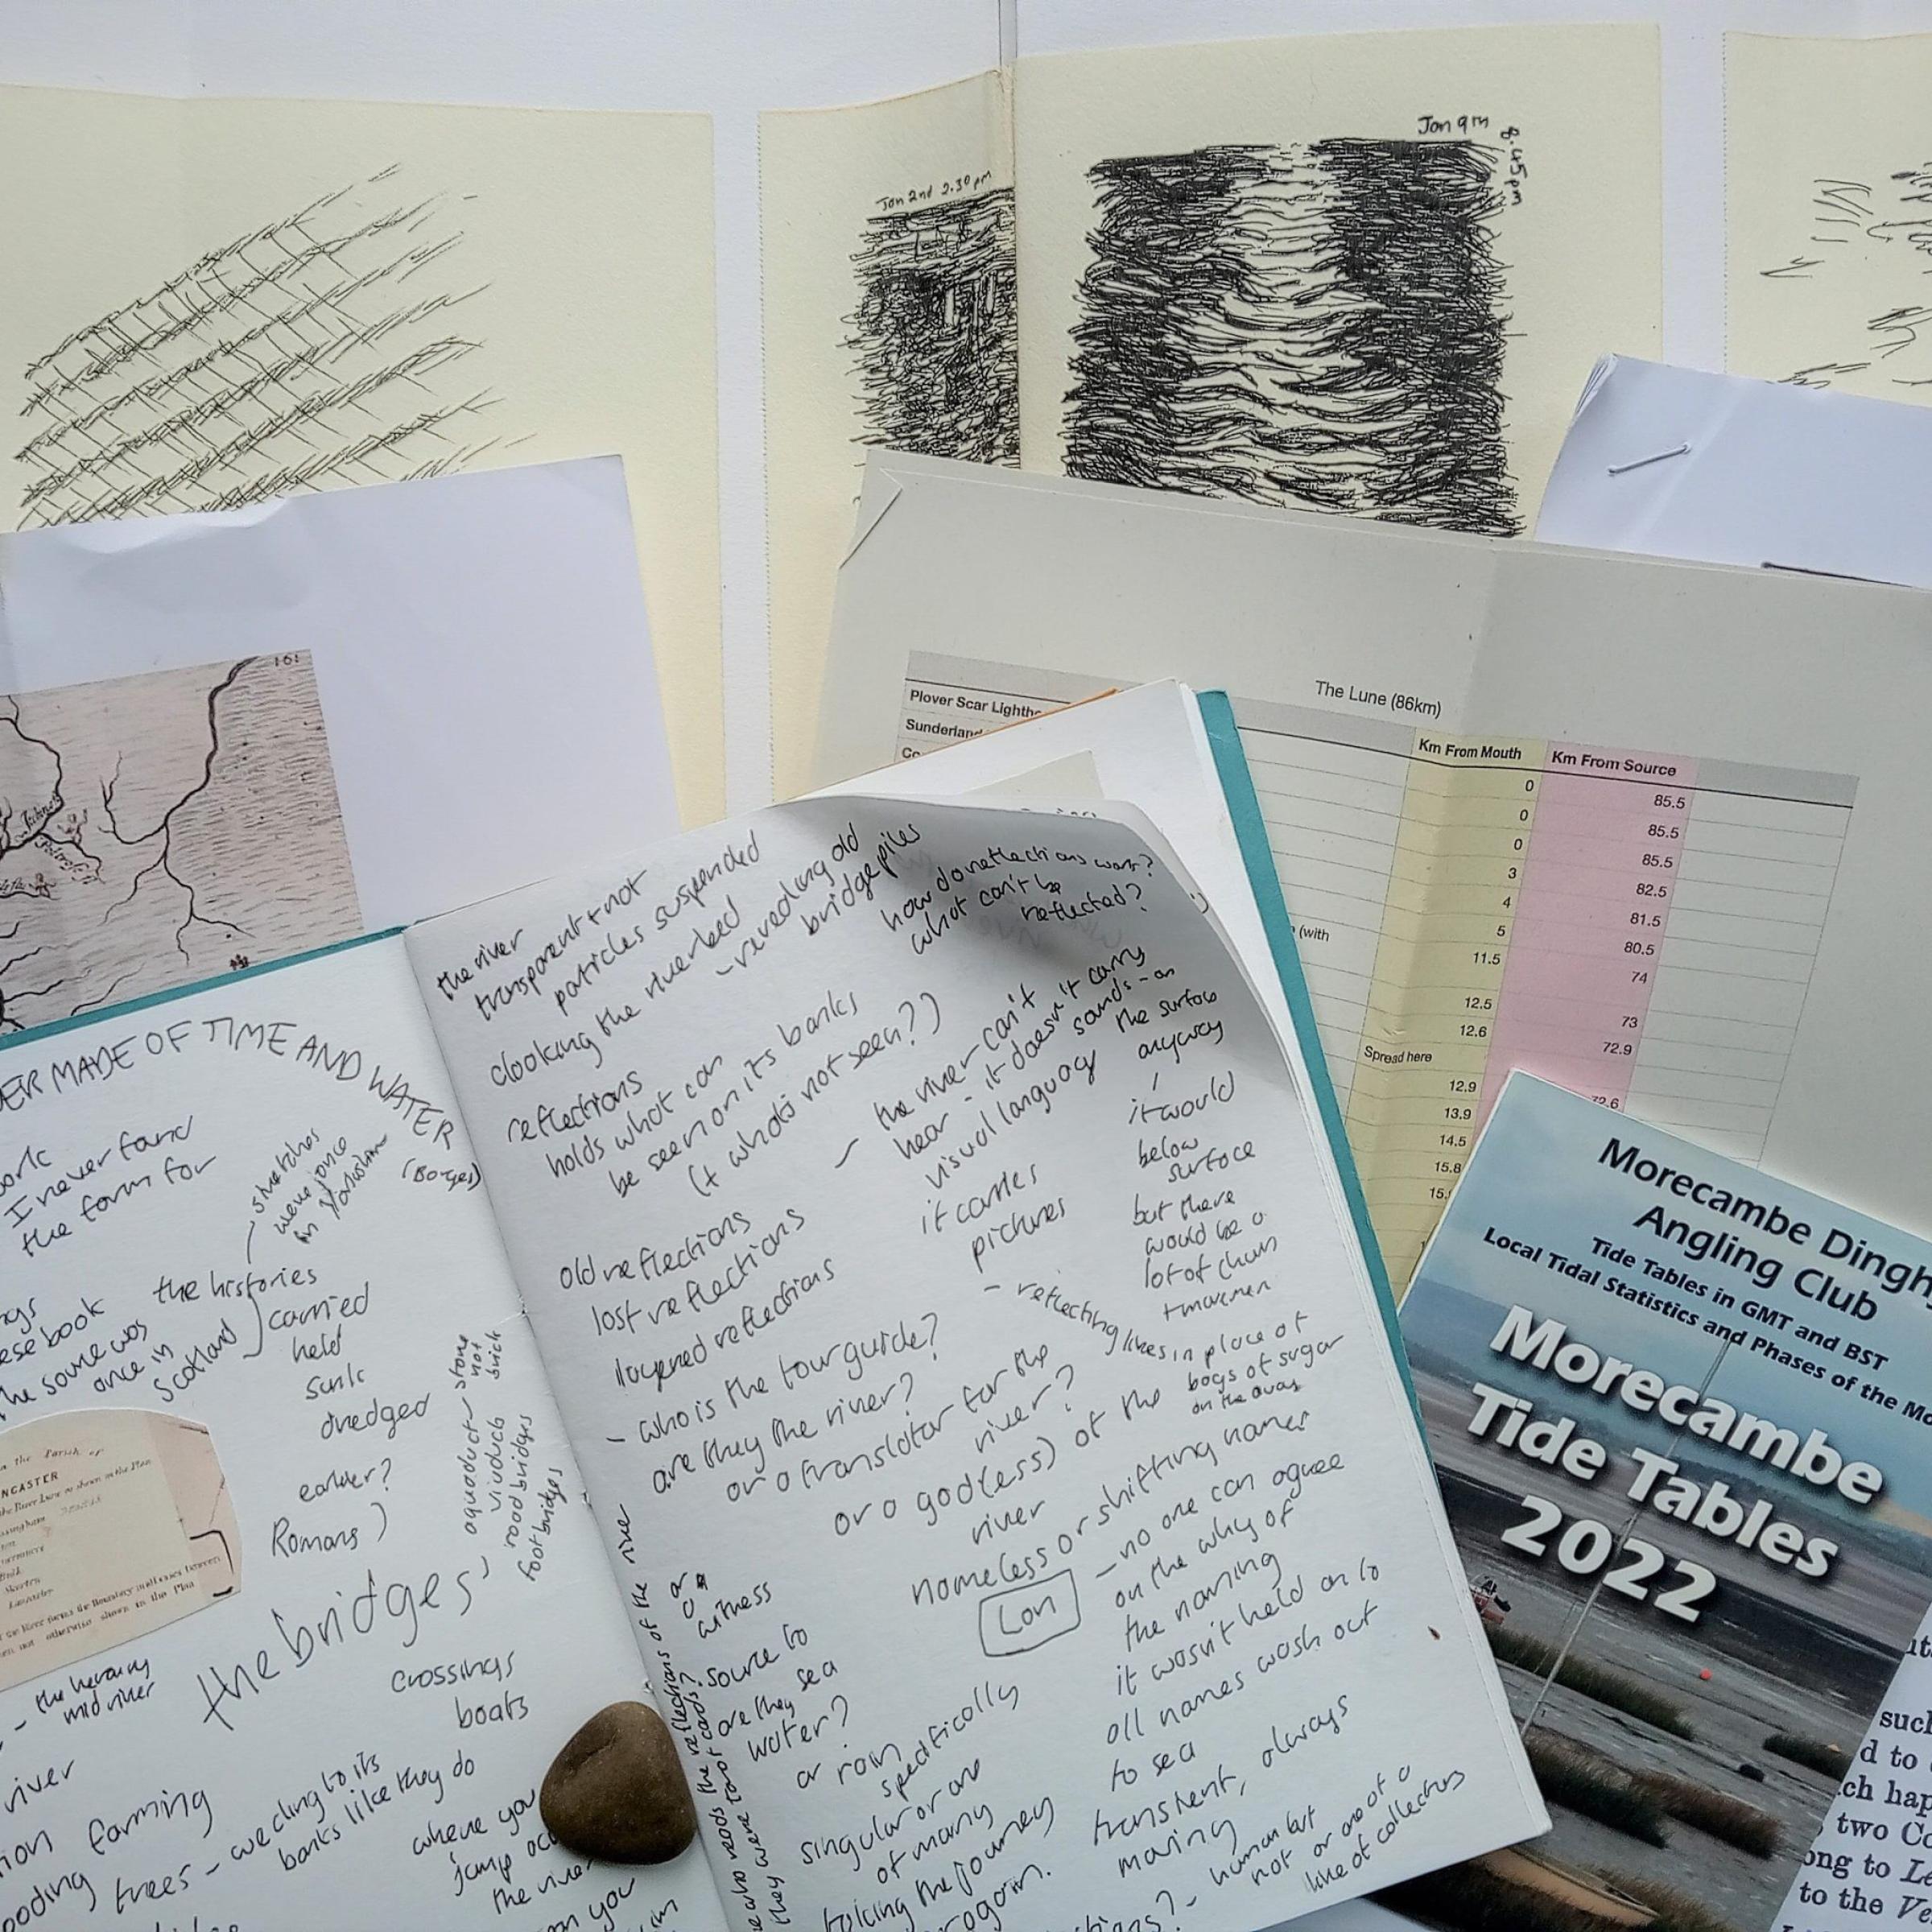 Jan 2nd 2.30 pm
Jan 9th
8.45pm
161
The Lune (86km)
Plover Scar Lighth
Sunderland
Co
Km From Mouth
Km From Source
0
85.5
0
85.5
0
85.5
3
82.5
4
81.5
5
80.5
(with
11.5
74
12.5
73
12.6
72.9
Spread here
12.9
72.6
13.9
14.5
15.8
15.
Morecambe Dingh
Angling Club
Tide Tables in GMT and BST
Local Tidal Statistics and Phases of the Mo
Morecambe
Tide Tables
2022
such
d to
ch hap
two Co
ong to Le
to the Ve
ER MADE OF TIME AND WATER
(Borges)
work
I never found
the form for
stretches
were once
in Yorkshire
the histories
carried
held
sunk
dredged
earlier?
Romans)
ese book
the source was
once in
Scotland
aqueduct - stone
not
brick
viaduct
road bridges
foot bridges
in the Parish of
NCASTER
the River Lune as shown on the Plan
the River forms the Boundary in all cases between
not otherwise shown in the Plan
the bridges'
crossings
boats
- the heraring
mid river
river
farming
ooding
trees - wedding to its
banks like they do
where you
jump acr
the river
the river
transparent + not
particles suspended
clooking the riverbed
- revealing old
bridge piles
how do reflections work?
what can't be
reflected?
reflections
holds what can
be seen on its banks
(+ what's not seen?)
- the river can't
hear - it doesn't carry
visual language
sounds - on
the surface
anyway
it would
below
surface
but there
would be a
lot of churn
+ movemen
it carries
pictures
old reflections
lost reflections
layered reflections
- reflecting lives in place of
bags of sugar
on the quay
- who is the tour guide?
are they the river?
or a translator for the
river?
or a god(ess) of the
river
or
a
witness
nameless or shifting names
Lon
- no one can agree
on the why of
the naming
it wasn't held on to
all names wash out
to sea
transient, always
moving
source to
sea
are they
water?
or rain
specifically
singular or are
of many
taking the journey
again.
who reads the reflections of the river
they were tarot cards?
- human but
not or one of a
line of collectors